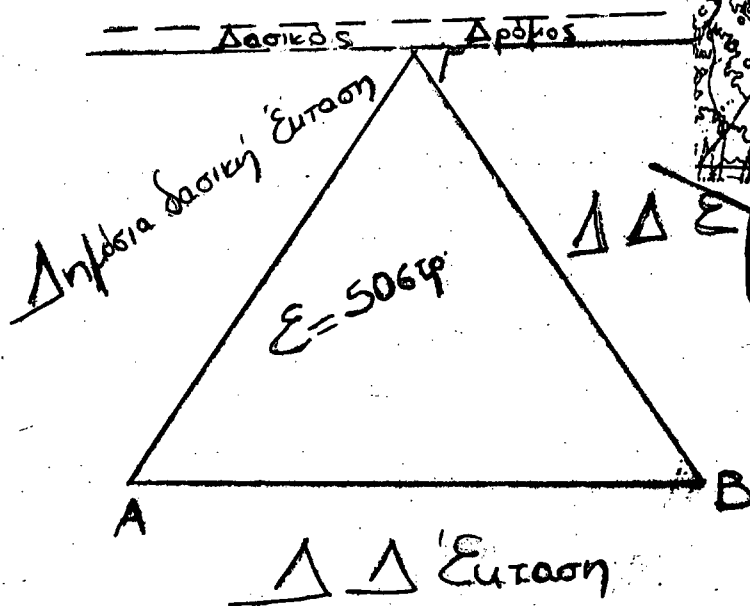 Δασικός Δρόμος
Γ
Δημόσια δασική έκταση
Δ Δ Ε
Ε=506τμ
Α
Β
Δ Δ Έκταση